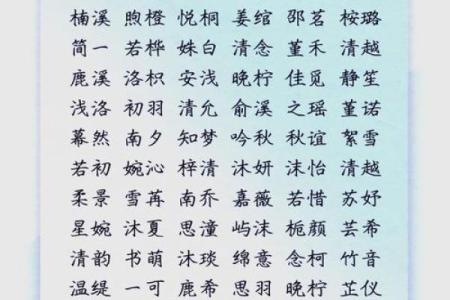 楠溪 煦橙 悦桐 姜绾 邵茗 桉璐
简一 若桦 姝白 清念 堇禾 清越
鹿溪 洛枳 安浅 晚柠 佳觅 静笙
浅洛 初羽 清允 俞溪 之瑶 堇诺
幕然 南夕 知梦 吟秋 秋谊 絮雪
若初 婉沁 梓清 沐妍 沫怡 清越
柔景 雪苒 南乔 嘉薇 若惜 苏妤
星婉 沐夏 思潼 屿沫 栀颜 芸希
清韵 书萌 沐琰 绵意 念柯 竹音
温缇 一可 鹿希 思羽 晚柠 芷仪